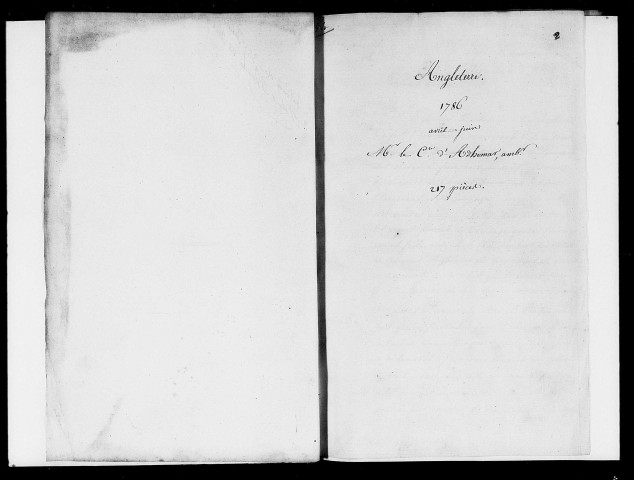 2
Angleterre.
1786
avril - juin
Mr. le Cte. d'Adhemar, ambr.
217 pièces.